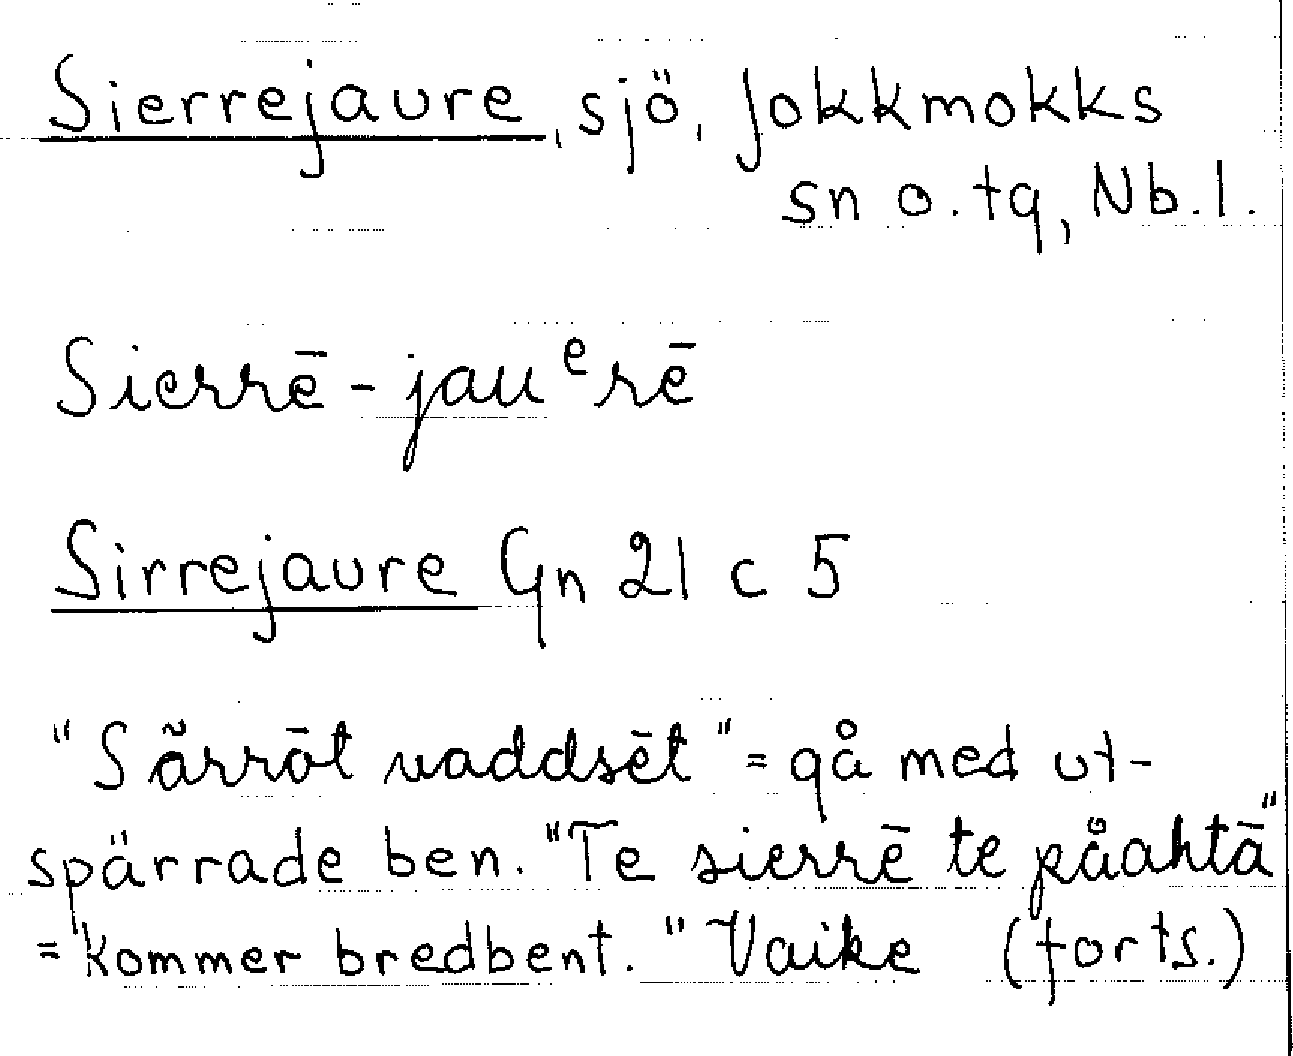 Sierrejaure, sjö, Jokkmokks
sn o. tg, Nb. l.
Sierrē-jauᵉrē
Sirrejaure Gn 21 c 5
"Sãrrōt vaddsēt" = gå med ut-
spärrade ben. "Te sierrē te påahtā"
= kommer bredbent. "Vaike (forts.)